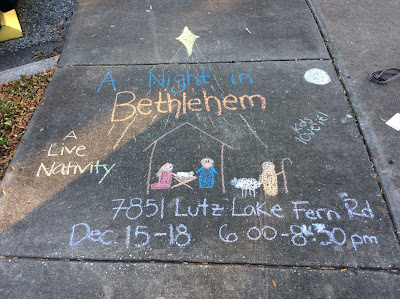 A Night in
Bethlehem
A
Live
Nativity
Kids
love it!
7851 Lutz Lake Fern Rd
Dec 15-18 6:00-8:30pm